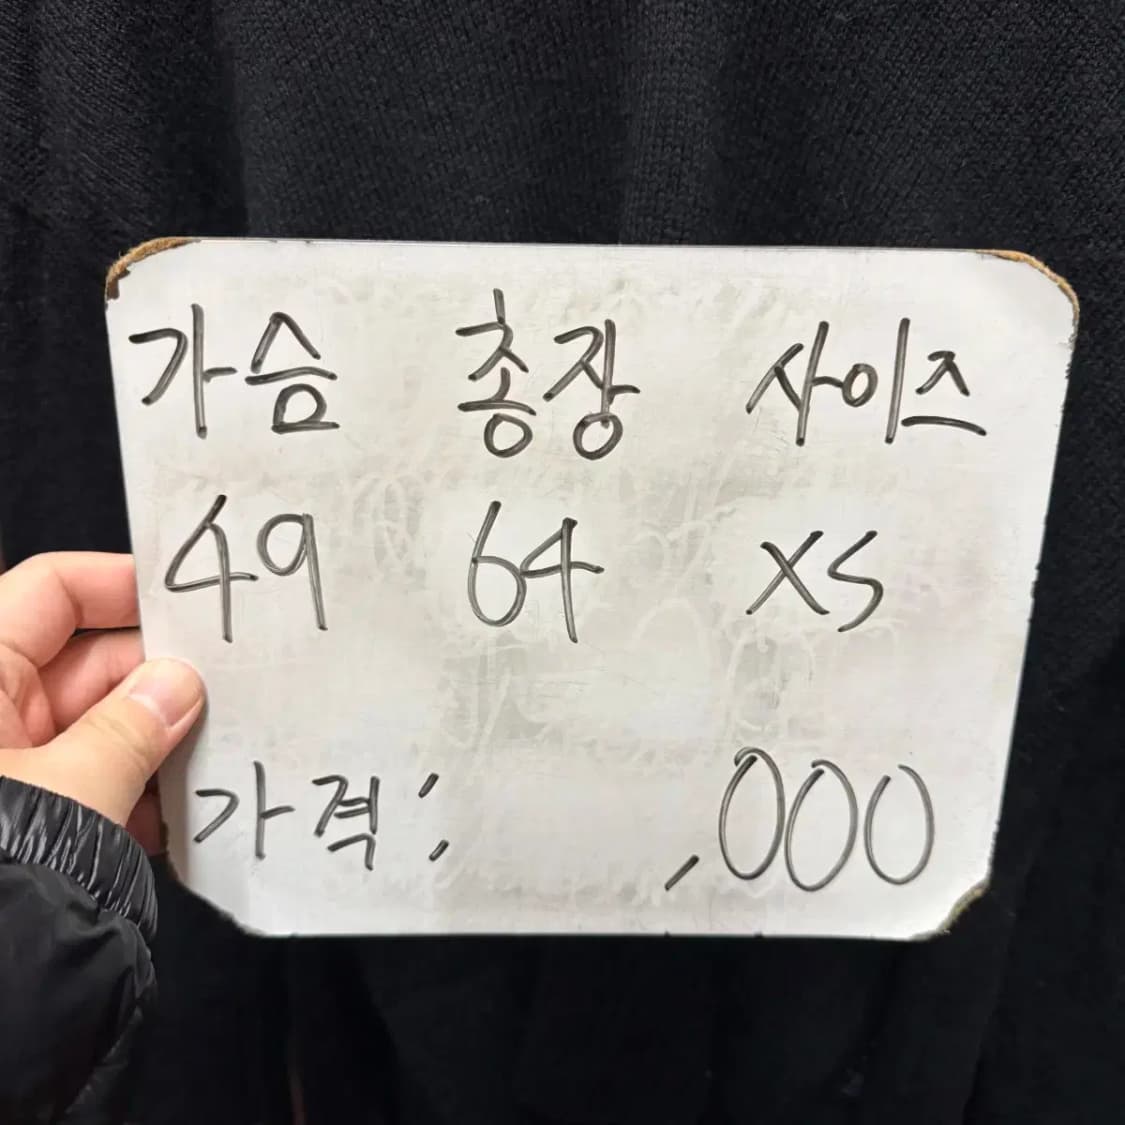 가슴 총장 사이즈
49 64 XS
가격: ,000